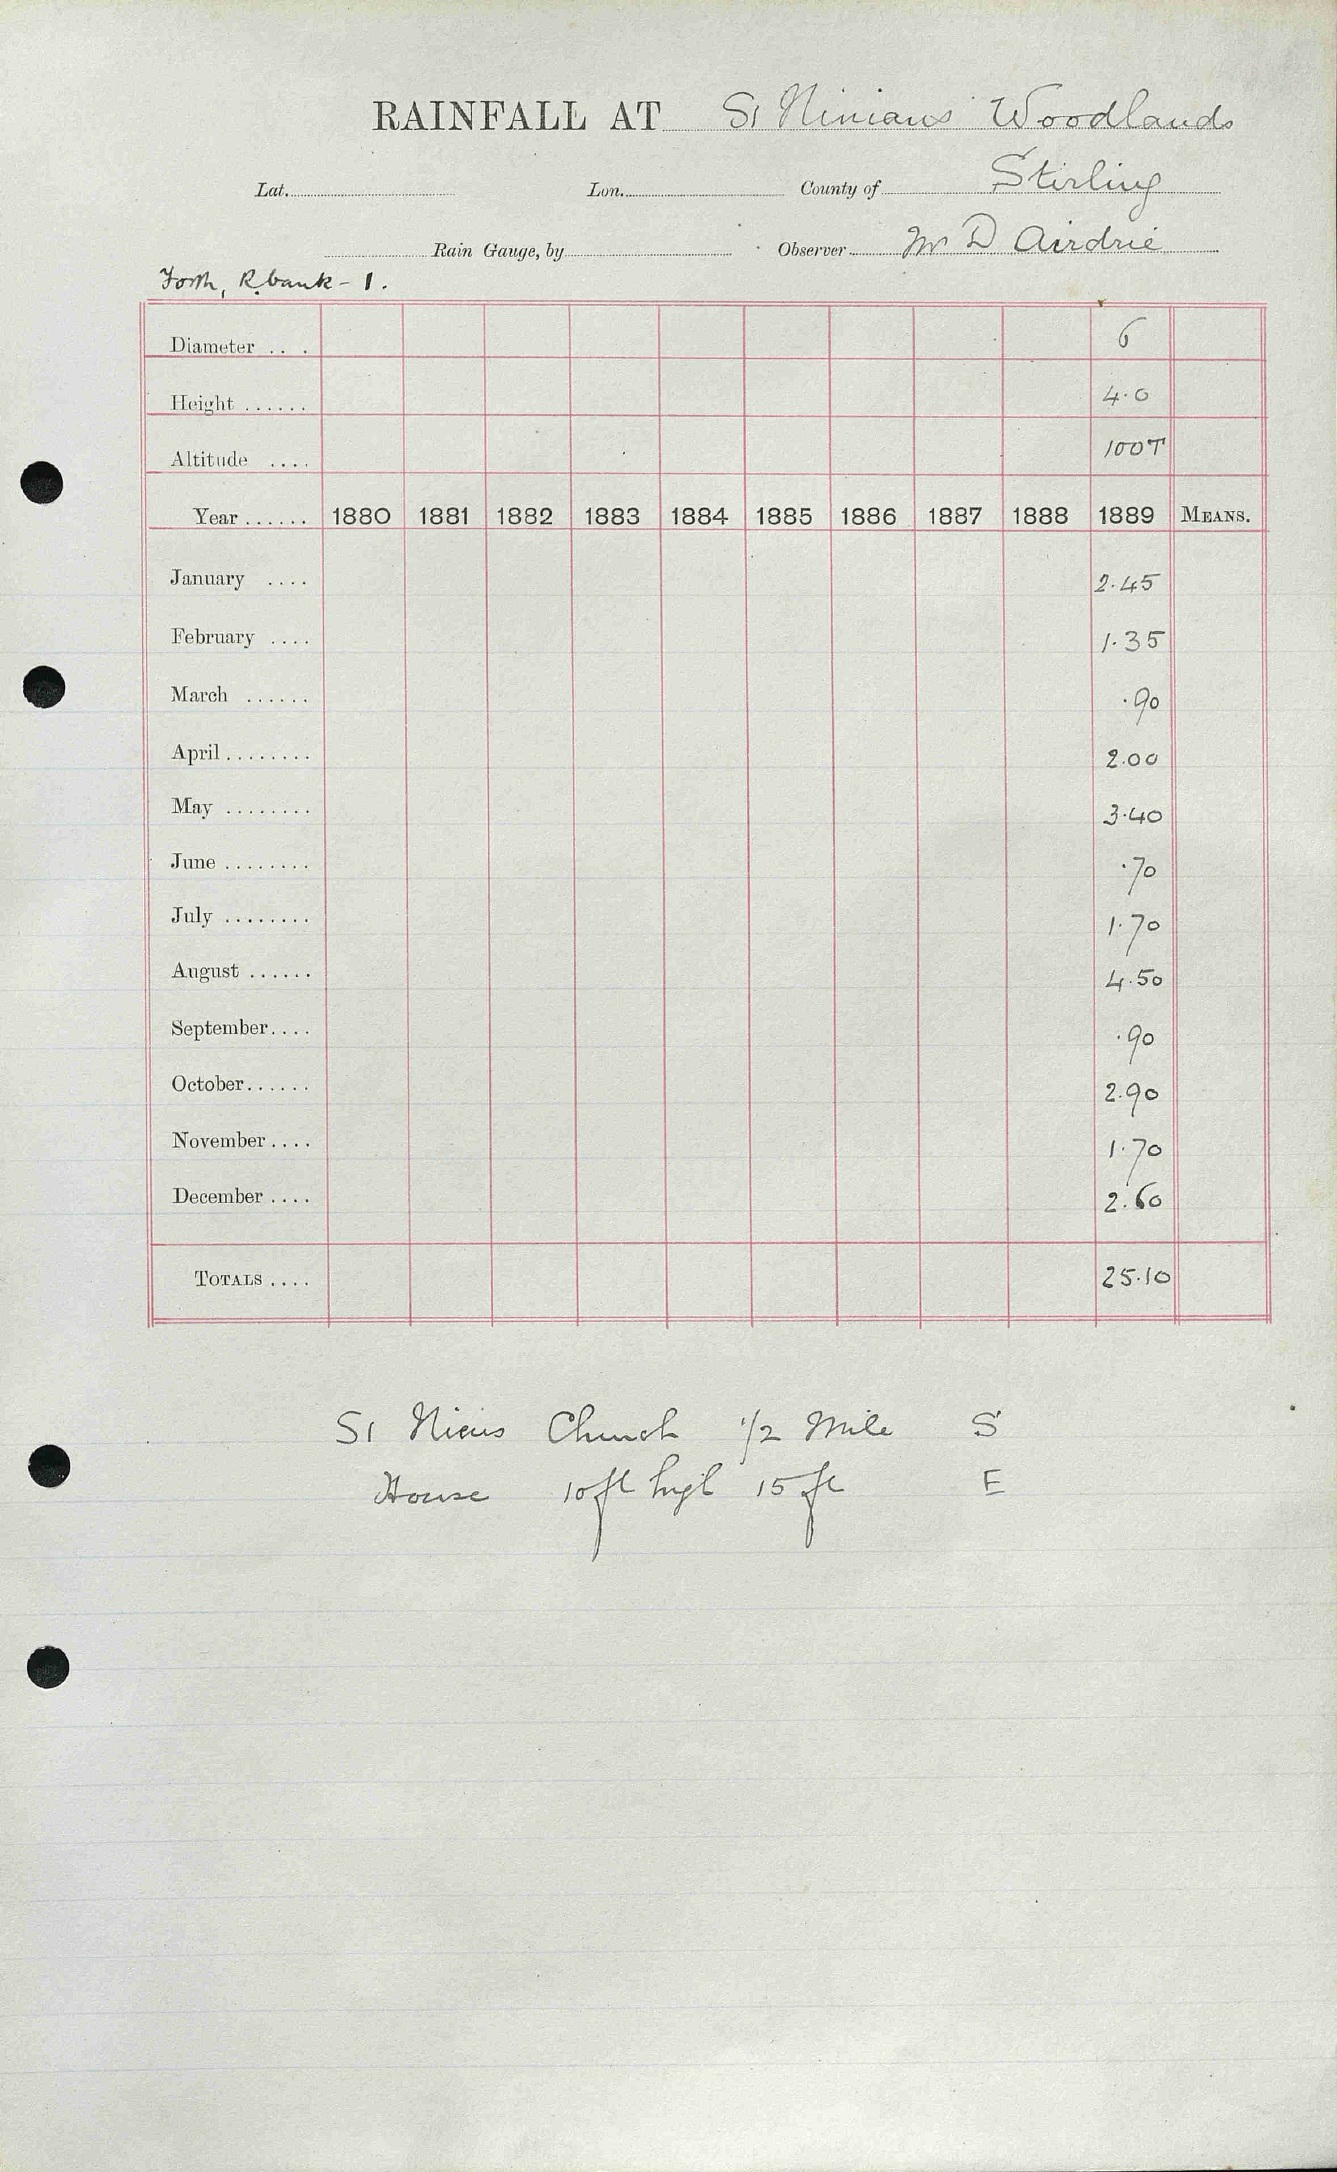 RAINFALL AT St Ninians Woodlands
Lat. Lon. County of Stirling
Rain Gauge, by Observer Mr D Airdrie
Forth, R. bank - 1.
Diameter .. . 6
Height ...... 4.0
Altitude .... 100T
Year ...... 1880 1881 1882 1883 1884 1885 1886 1887 1888 1889 MEANS.
January .... 2.45
February .... 1.35
March ...... .90
April ........ 2.00
May ........ 3.40
June ........ .70
July ........ 1.70
August ...... 4.50
September .... .90
October ...... 2.90
November .... 1.70
December .... 2.60
TOTALS .... 25.10
St Church 1/2 Mile S
House 10ft high 15 ft E